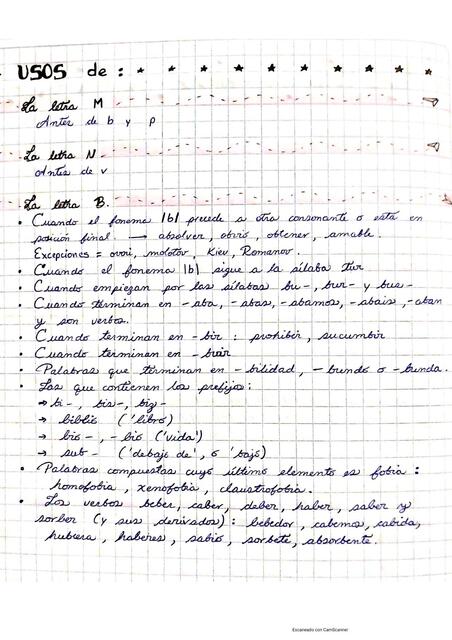 USOS de :
La letra M
Antes de b y p
La letra N
Antes de v
La letra B.
• Cuando el fonema |b| precede a otra consonante o está en
posición final. → absolver, obvio, obtener, amable.
Excepciones = ovni, molotov, Kiev, Romanov.
• Cuando el fonema |b| sigue a la sílaba tur.
• Cuando empiezan por las sílabas bu-, bur- y bus-
• Cuando terminan en -aba, -abas, -abamos, -abais, -aban
y son verbos.
• Cuando terminan en -bir : prohibir, sucumbir
• Cuando terminan en -buir
• Palabras que terminan en -bilidad, -bundo o -bunda.
• Las que contienen los prefijos:
→ bi-, bis-, biz-
→ biblio ('libro')
→ bio-, -bio ('vida')
→ sub- ('debajo de', o 'bajo)
• Palabras compuestas cuyo último elemento es fobia :
homofobia, xenofobia, claustrofobia.
• Los verbos beber, caber, deber, haber, saber y
sorber (y sus derivados) : bebedor, cabemos, cabida,
hubiera, haberes, sabio, sorbete, absorbente.
Escaneado con CamScanner